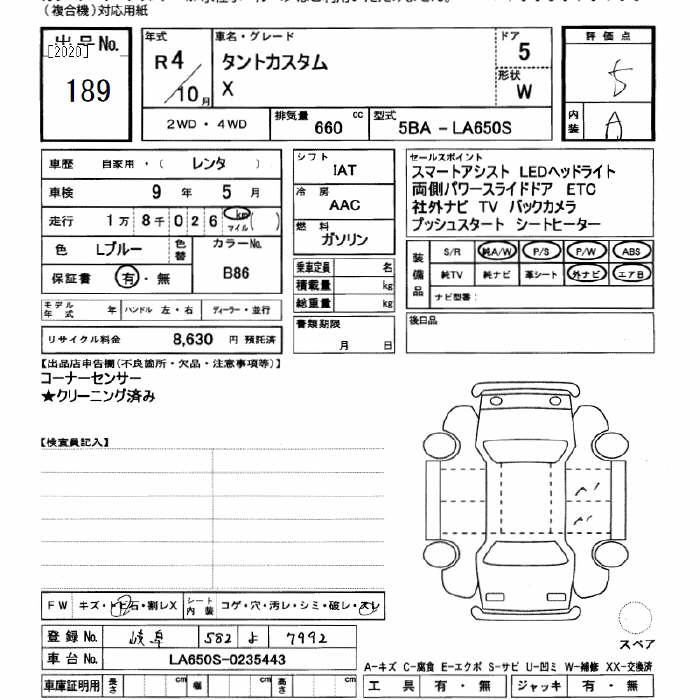 （複合機）対応用紙
出品No.
[2020]
189
年式
R4/10月
車名・グレード
タントカスタム
X
ドア
5
形状
W
評価点
5
内装
A
2WD・4WD
排気量 660 cc
型式 5BA - LA650S
車歴 自家用・( レンタ )
車検 9年 5月
走行 1万 8千 0 2 6 km マイル ( )
色 Lブルー
色替
カラーNo.
B86
保証書 有・無
モデル年式 年 ハンドル 左・右 ディーラー・並行
リサイクル料金 8,630 円 預託済
シフト
IAT
冷房
AAC
燃料
ガソリン
乗車定員 名
積載量 kg
総重量 kg
書類期限
月 日
セールスポイント
スマートアシスト LEDヘッドライト
両側パワースライドドア ETC
社外ナビ TV バックカメラ
プッシュスタート シートヒーター
装備品
S/R 純A/W P/S P/W ABS
純TV 純ナビ 革シート 外ナビ エアB
ナビ型番：
後日品
【出品店申告欄(不良箇所・欠品・注意事項等)】
コーナーセンサー
★クリーニング済み
【検査員記入】
FW キズ・トビ石・割レX
シート内装 コゲ・穴・汚レ・シミ・破レ・スレ
登録No. 岐阜 582 よ 7992
車台No. LA650S-0235443
車庫証明用 長さ cm 幅 cm 高さ cm
A1
スペア
A-キズ C-腐食 E-エクボ S-サビ U-凹ミ W-補修 XX-交換済
工具 有・無 ジャッキ 有・無